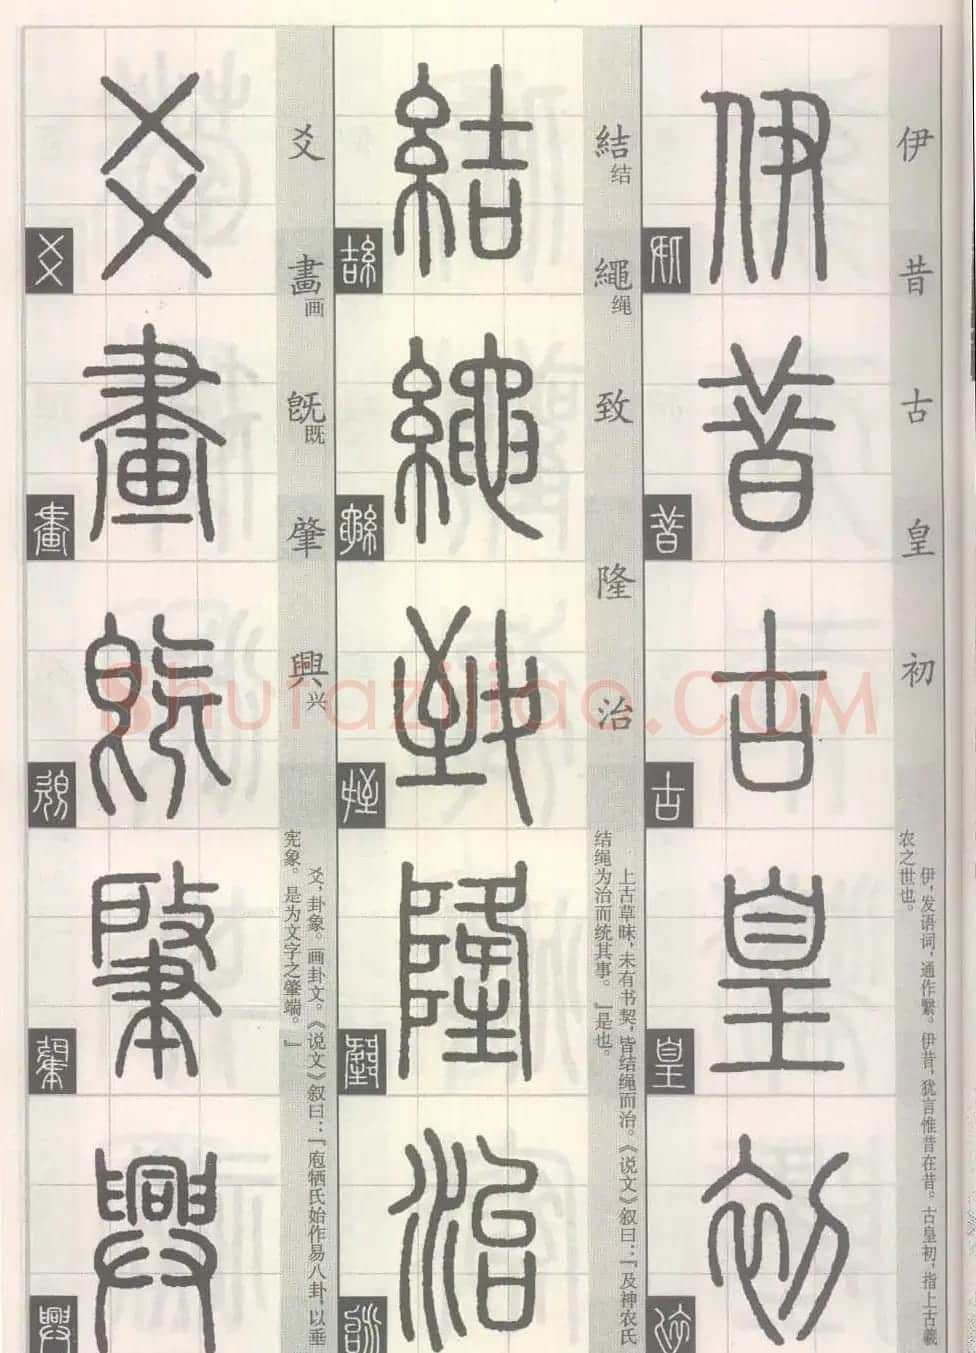 伊昔古皇初
伊昔古皇初
伊，发语词，通作繄。伊昔，犹言惟昔在昔。古皇初，指上古羲
农之世也。
結繩致隆治
結结繩绳致隆治
上古草昧，未有书契，皆结绳而治。《说文》叙曰：『及神农氏
结绳为治而统其事。』是也。
爻畫旣肇興
爻畫画旣既肇興兴
爻，卦象。画卦文。《说文》叙曰：『庖牺氏始作易八卦，以垂
宪象。是为文字之肇端。』
Shufaziliao.COM